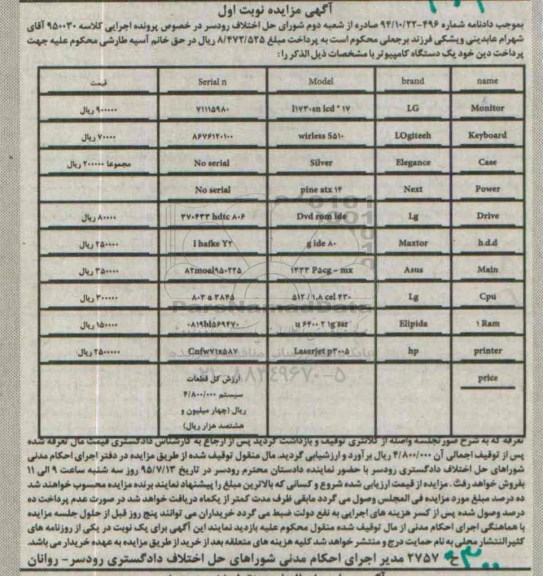 آگهی مزایده نوبت اول
بموجب دادنامه شماره ۴۹۶-۹۴/۱۰/۲۲ صادره از شعبه دوم شورای حل اختلاف رودسر در خصوص پرونده اجرایی کلاسه ۹۵۰۰۳۰ آقای
شهرام عابدینی ویشکی فرزند برجعلی محکوم است به پرداخت مبلغ ۸/۴۷۳/۵۲۵ ریال در حق خانم آسیه طارشی محکوم علیه جهت
پرداخت دین خود یک دستگاه کامپیوتر با مشخصات ذیل الذکر را:
name brand Model Serial n قیمت
Monitor LG lcd * ۱۷ ۷۱۱۱۵۹۸۰ ۹۰۰۰۰۰ ریال
Keyboard LOgiteeh wirless S۵۱۰ ۸۶۷۶۱۲۰۱۰۰ ۷۰۰۰۰ ریال
Case Elegance Silver No serial مجموعا ۲۰۰۰۰۰ ریال
Power Next pine atx ۱۴ No serial
Drive Lg Dvd rom ide ۳۷۰۶۳۳ hdtc ۸۰۶ ۸۰۰۰۰ ریال
h.d.d Maxtor g ide ۸۰ l hafke Y۲ ۲۵۰۰۰۰ ریال
Main Asus ۱۳۳۳ P۵cg – mx ۳۵۰۰۰۰ ریال
Cpu Lg ۵۱۲ / ۱.۸ cel ۴۳۰ ۸۰۳ a ۳۸۴۵ ۳۰۰۰۰۰ ریال
۱ Ram Elipida ۱۵۰۰۰۰ ریال
printer hp Laserjet p۲۰۰۵ Cnfw۷۱x۵۸۷ ۲۵۰۰۰۰۰ ریال
price ارزش کل قطعات
سیستم ۴/۸۰۰/۰۰۰
ریال (چهار میلیون و
هشتصد هزار ریال)
ParsNamadData
۰۲۱-۸۸۳۴۹۶۷۰-۵
تعرفه که به شرح صورتجلسه واصله از کلانتری توقیف و بازداشت گردید پس از ارجاع به کارشناس دادگستری قیمت مال تعرفه شده
پس از توقیف اجمالی آن ۴/۸۰۰/۰۰۰ ریال برآورد و ارزشیابی گردید. مال منقول توقیف شده از طریق مزایده در دفتر اجرای احکام مدنی
شوراهای حل اختلاف دادگستری رودسر با حضور نماینده دادستان محترم رودسر در تاریخ ۹۵/۷/۱۳ روز سه شنبه ساعت ۹ الی ۱۱
بفروش خواهد رفت. مزایده از قیمت ارزیابی شده شروع و کسانی که بالاترین مبلغ را پیشنهاد نمایند برنده مزایده محسوب خواهند شد
ده درصد مبلغ مورد مزایده فی المجلس وصول می گردد مابقی ظرف مدت کمتر از یکماه دریافت خواهد شد در صورت عدم پرداخت ده
درصد وصول شده پس از کسر هزینه های اجرایی به نفع دولت ضبط می گردد خریداران می توانند پنج روز قبل از حلول جلسه مزایده
با هماهنگی اجرای احکام مدنی از مال توقیف شده منقول محکوم علیه بازدید نمایند این آگهی برای یک نوبت در یکی از روزنامه های
کثیرالانتشار محلی به نام حمایت درج و منتشر خواهد شد کلیه هزینه های متعلقه بعد از خرید از طریق مزایده به عهده خریدار می باشد.
ح ۲۷۵۷ مدیر اجرای احکام مدنی شوراهای حل اختلاف دادگستری رودسر- روانان